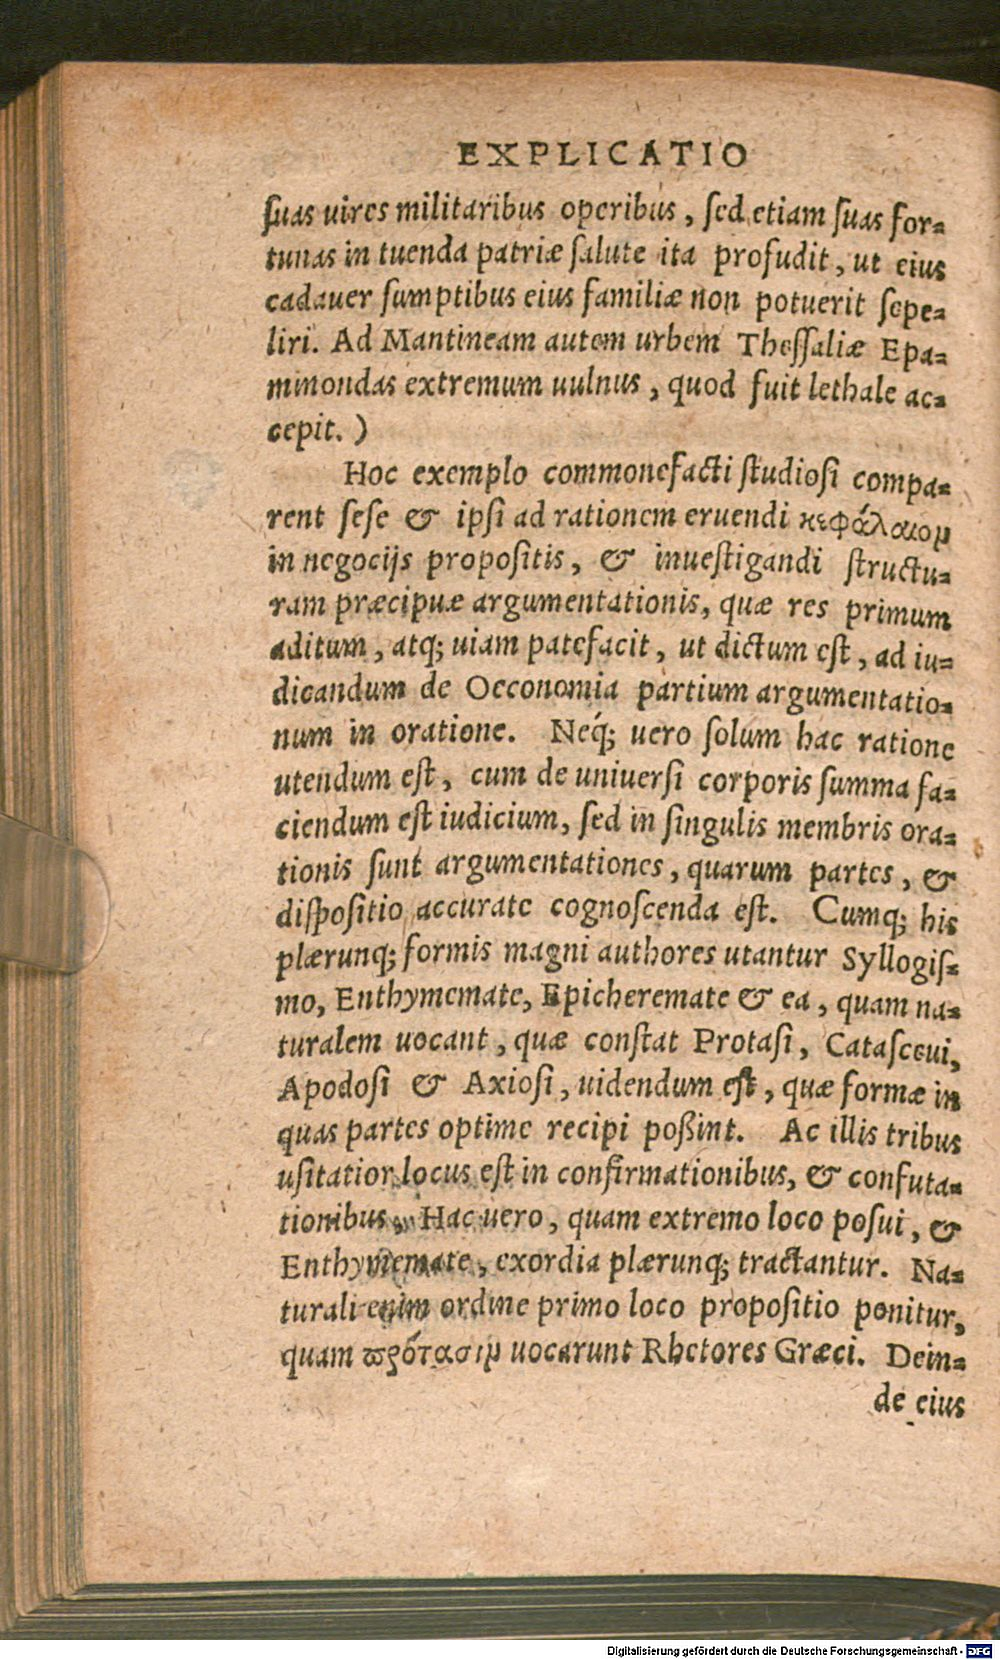 EXPLICATIO
ſuas uires militaribus operibus, ſed etiam ſuas for-
tunas in tuenda patriæ ſalute ita profudit, ut eius
cadauer ſumptibus eius familiæ non potuerit ſepe-
liri. Ad Mantineam autem urbem Theſſaliæ Epa-
minondas extremum uulnus, quod fuit lethale ac-
cepit. )
Hoc exemplo commonefacti ſtudioſi compa-
rent ſeſe & ipſi ad rationem eruendi κεφάλαιομ
in negocijs propoſitis, & inueſtigandi ſtructu-
ram præcipuæ argumentationis, quæ res primum
aditum, atq; uiam patefacit, ut dictum eſt, ad iu-
dicandum de Oeconomia partium argumentatio-
num in oratione. Neq́; uero ſolum hac ratione
utendum eſt, cum de uniuerſi corporis ſumma fa-
ciendum eſt iudicium, ſed in ſingulis membris ora-
tionis ſunt argumentationes, quarum partes, &
diſpoſitio accurate cognoſcenda eſt. Cumq; his
plærunq; formis magni authores utantur Syllogiſ-
mo, Enthymemate, Epicheremate & ea, quam na-
turalem uocant, quæ conſtat Protaſi, Cataſceui,
Apodoſi & Axioſi, uidendum eſt, quæ formæ in
quas partes optime recipi poßint. Ac illis tribus
uſitatior locus eſt in confirmationibus, & confuta-
tionibus. Hac uero, quam extremo loco poſui, &
Enthymemate, exordia plærunq; tractantur. Na-
turali enim ordine primo loco propoſitio ponitur,
quam ϖρότασιμ uocarunt Rhetores Græci. Dein-
de eius
Digitalisierung gefördert durch die Deutsche Forschungsgemeinschaft - DFG